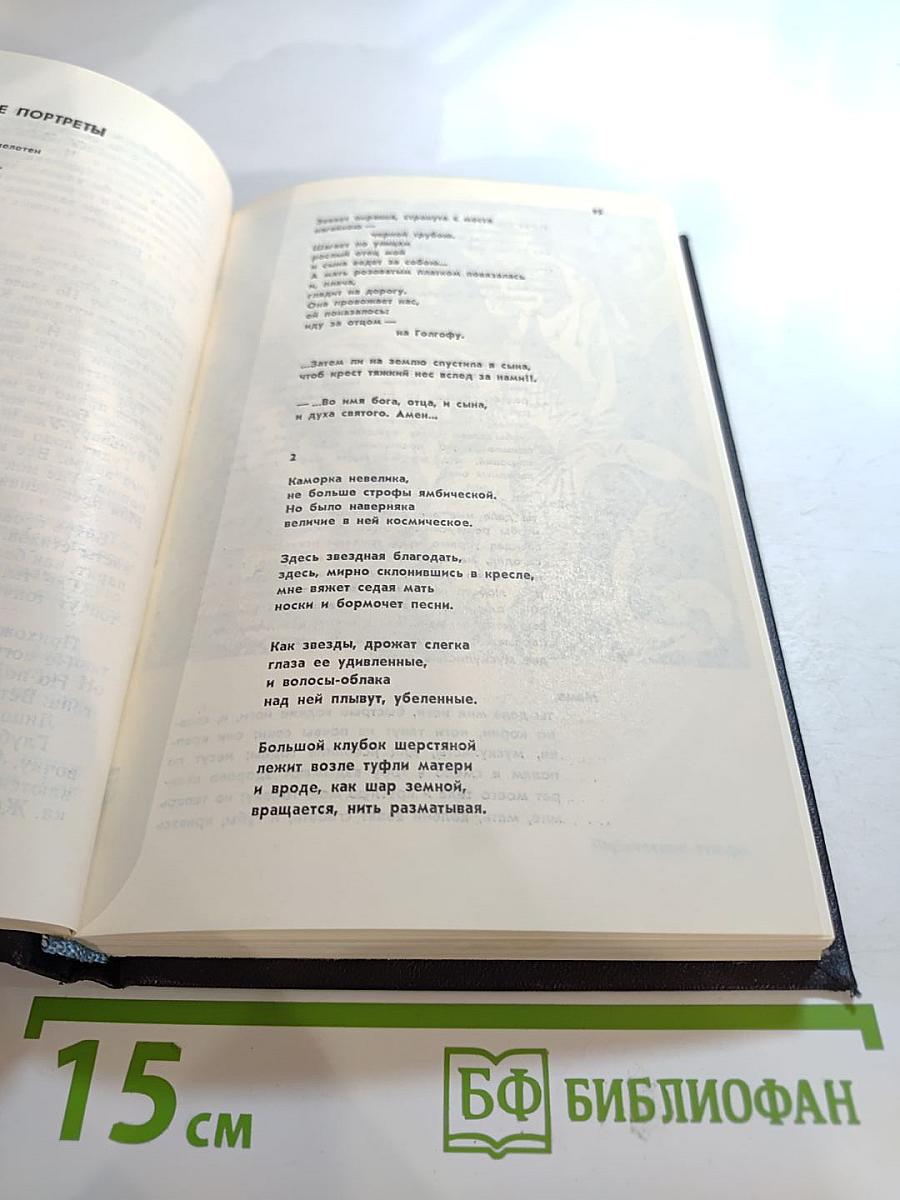 Е ПОРТРЕТЫ
полотен
95
Зевает окраина, странута с места
нагайкою —
черной трубою.
Шагает по улицам
рослый отец мой
и сына ведет за собою...
А мать розоватым платком повязалась
и, плача,
глядит на дорогу.
Она провожает нас,
ей показалось:
иду за отцом —
на Голгофу.
...Затем ли на землю спустила я сына,
чтоб крест тяжкий нес вслед за нами!!.
— ...Во имя бога, отца, и сына,
и духа святого. Амен...
2
Каморка невелика,
не больше строфы ямбической.
Но было наверняка
величие в ней космическое.
Здесь звездная благодать,
здесь, мирно склонившись в кресле,
мне вяжет седая мать
носки и бормочет песни.
Как звезды, дрожат слегка
глаза ее удивленные,
и волосы-облака
над ней плывут, убеленные.
Большой клубок шерстяной
лежит возле туфли матери
и вроде, как шар земной,
вращается, нить разматывая.
15 см
БФ БИБЛИОФАН